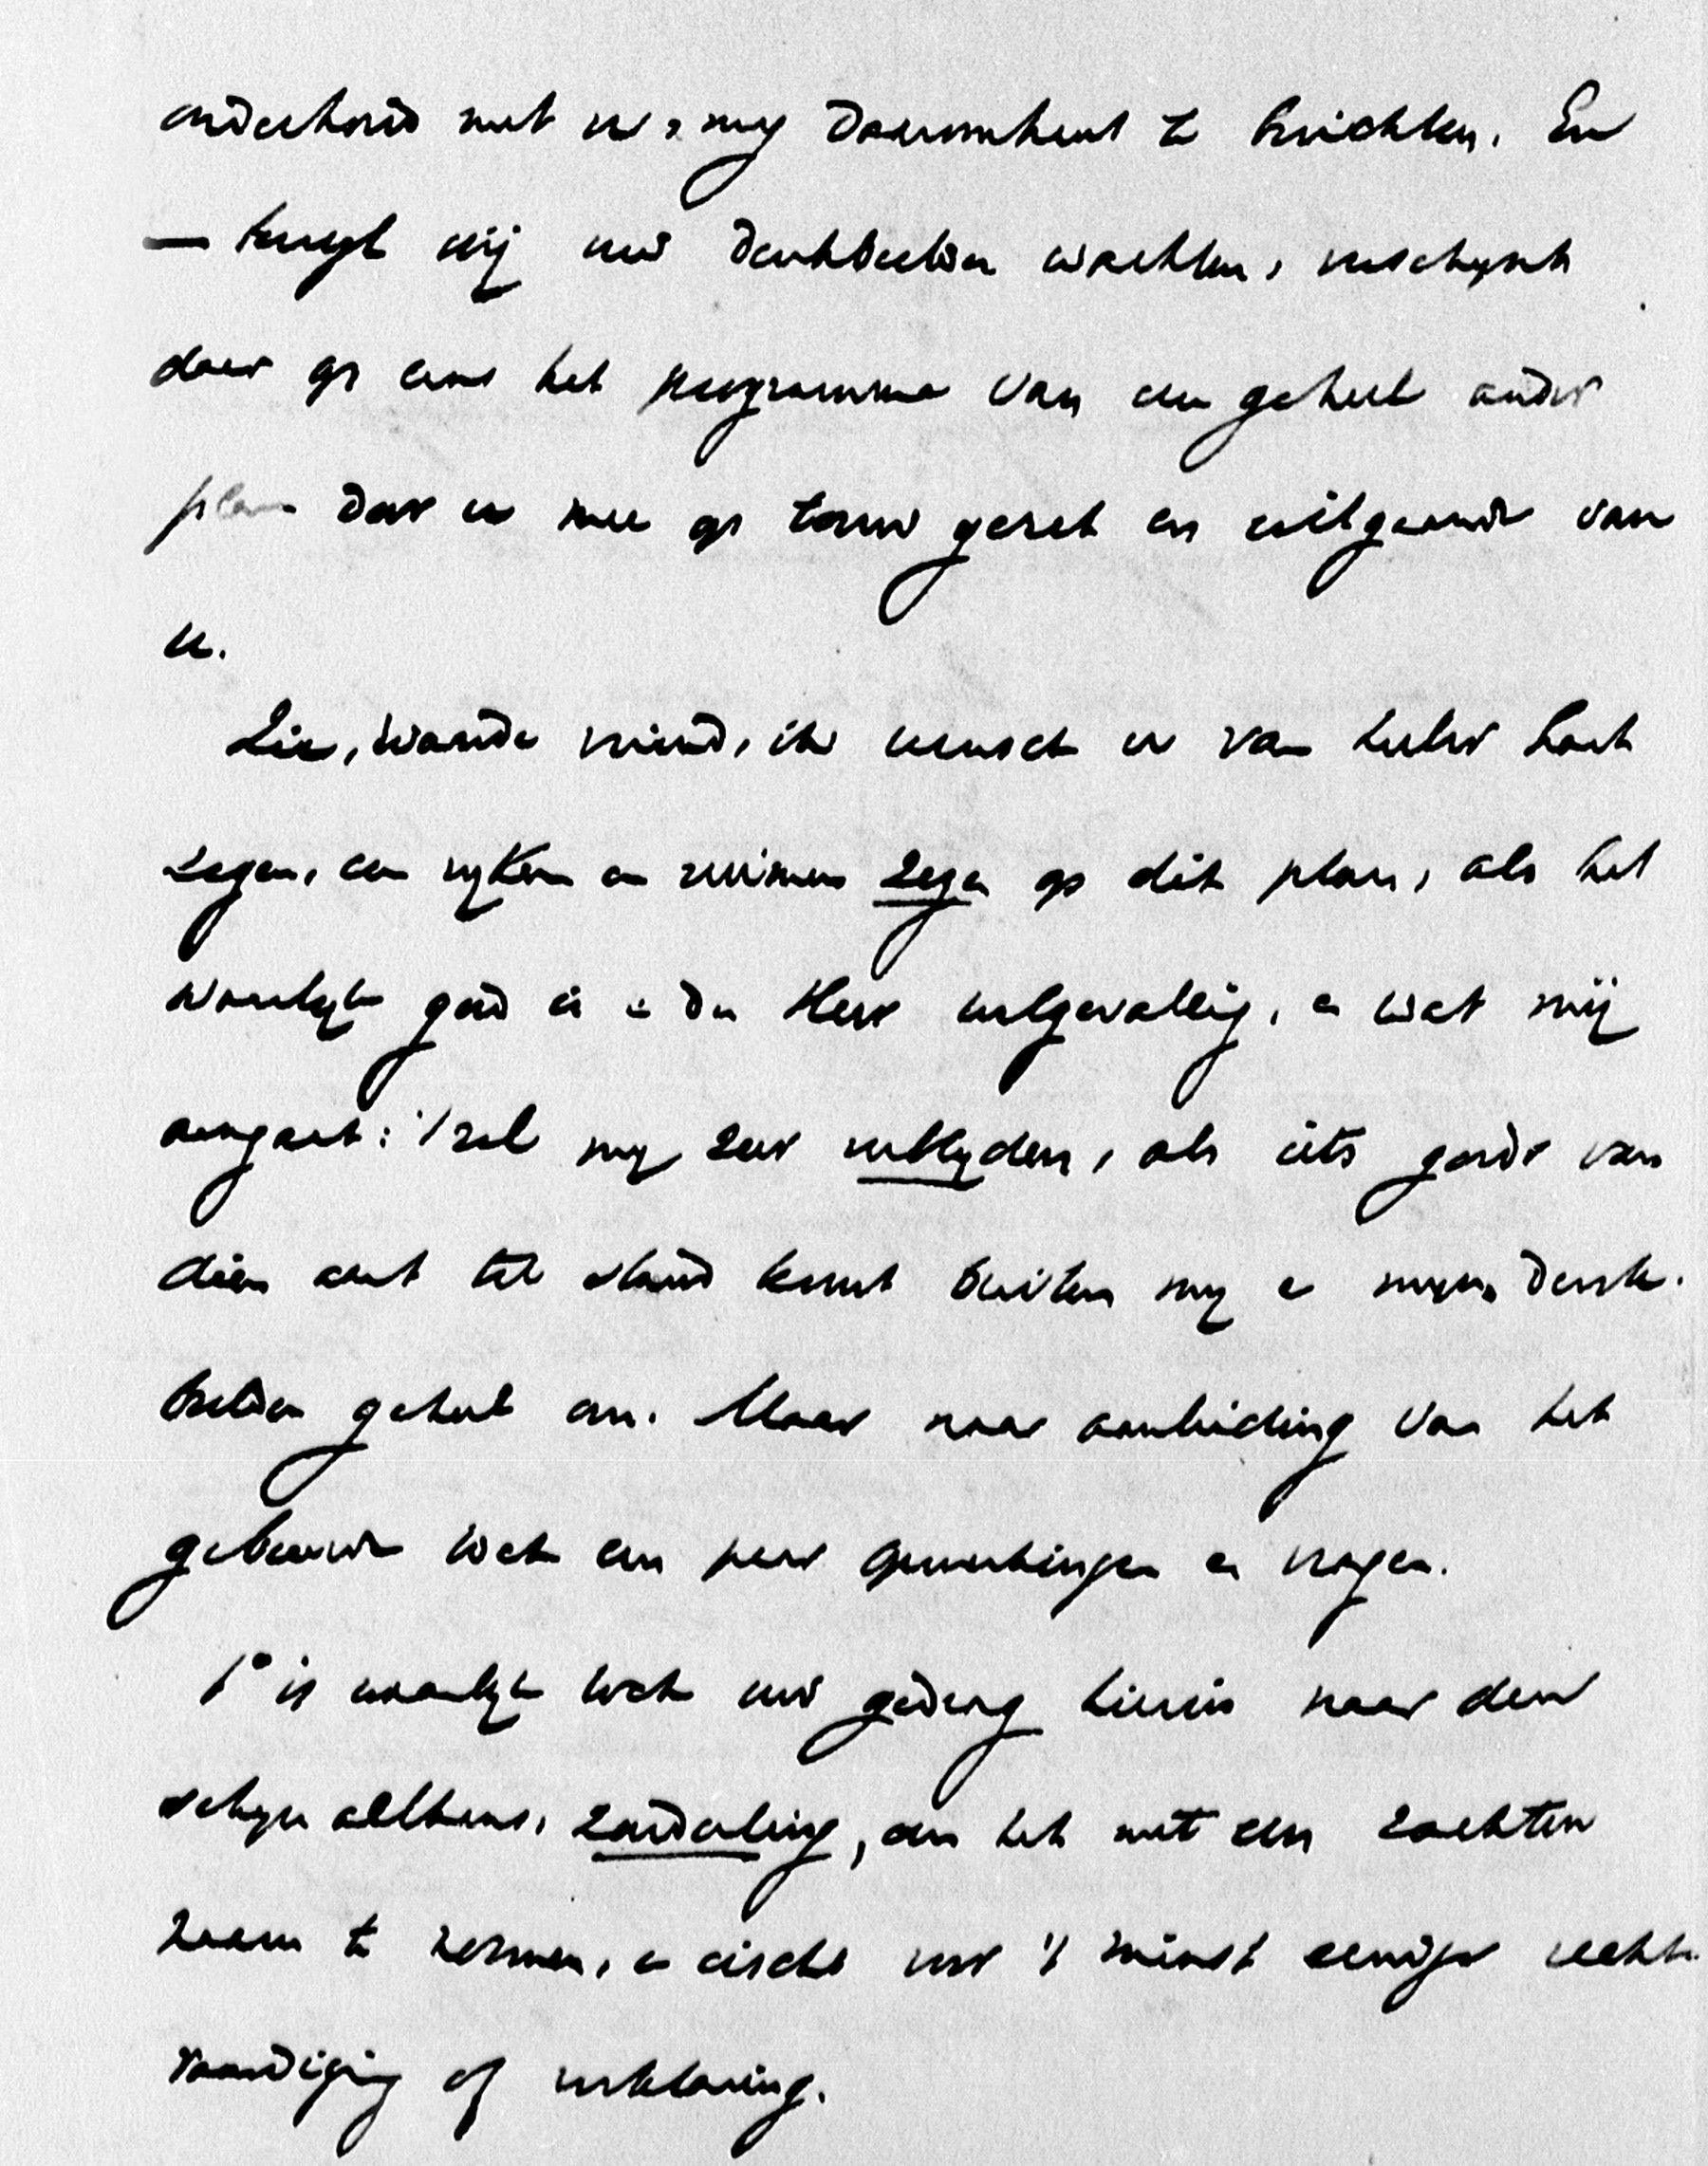 onderhoud met u, mij daaromtrent te berichten. En
— terwijl wij uw denkbeelden wachten, verschijnt
daar op eens het programma van een geheel ander
plan door u mee op touw gezet en uitgaande van
u.
Zie, waarde vriend, ik wensch u van heeler hart
zegen, een rijken en ruimen zegen op dit plan, als het
waarlijk goed is en den Heer welgevallig, en wat mij
aangaat: 't zal mij zeer verblijden, als iets goeds van
dien aard tot stand komt buiten mij en mijn denk-
beelden geheel om. Maar naar aanleiding van het
gebeurde toch een paar opmerkingen en vragen.
1° is waarlijk toch uw gedrag hierin naar den
schijn althans, zonderling, om het met een zachten
naam te noemen, en eischt voor 't minst eenige recht-
vaardiging of verklaring.